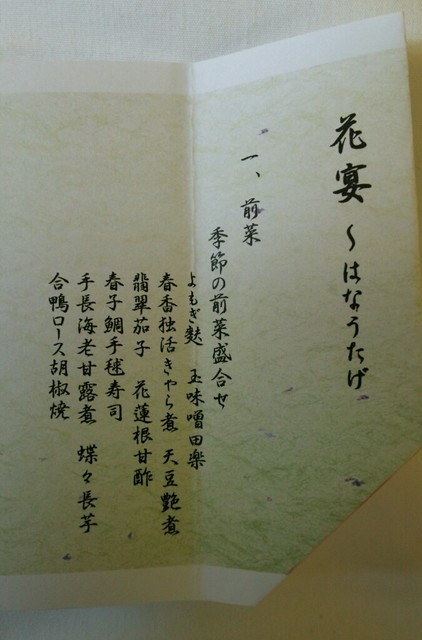 花宴 ~はなうたげ
一、前菜
季節の前菜盛合せ
よもぎ麩 玉味噌田楽
春香独活きゃら煮 天豆艶煮
翡翠茄子 花蓮根甘酢
春子鯛手毬寿司
手長海老甘露煮 蝶々長芋
合鴨ロース胡椒焼